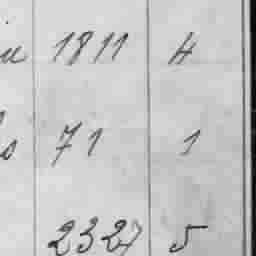 1811 4
71 1
2327 5